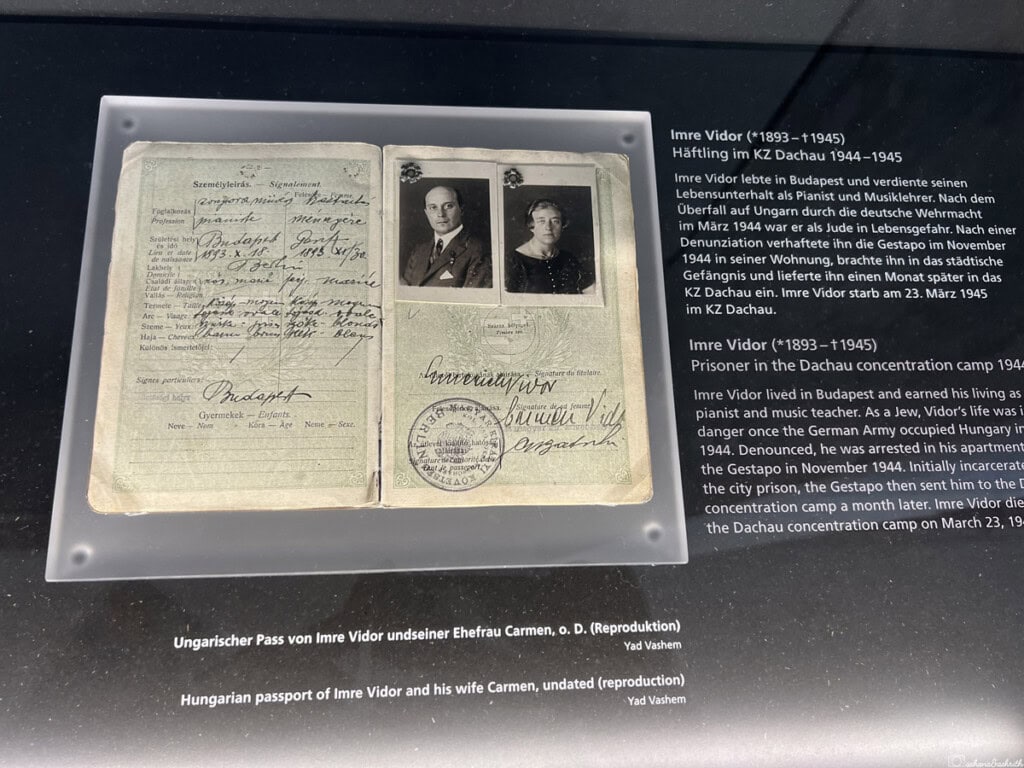 Személyleírás. — Signalement.
Feleség - Femme
Foglalkozás
Profession
pianiste
Születési hely
és idő
Lieu et date
de naissance
Budapest
1893. X. 18
1893
Berlin
Lakhely
Domicile
Családi állapot
État de famille
marié
mariée
Vallás - Religion
Termete - Taille
közép
moyen
Arc - Visage
ovale
Szeme - Yeux
Haja - Cheveux
Különös ismertetőjel:
Signes particuliers:
Budapest
Gyermekek — Enfants.
Neve — Nom
Kora — Age
Neme — Sexe.
Signature du titulaire.
Emerich Vidor
Signature de sa femme
Carmen Vidor
BERLIN
KÖVETSÉG
Imre Vidor (*1893 – †1945)
Häftling im KZ Dachau 1944 – 1945
Imre Vidor lebte in Budapest und verdiente seinen
Lebensunterhalt als Pianist und Musiklehrer. Nach dem
Überfall auf Ungarn durch die deutsche Wehrmacht
im März 1944 war er als Jude in Lebensgefahr. Nach einer
Denunziation verhaftete ihn die Gestapo im November
1944 in seiner Wohnung, brachte ihn in das städtische
Gefängnis und lieferte ihn einen Monat später in das
KZ Dachau ein. Imre Vidor starb am 23. März 1945
im KZ Dachau.
Imre Vidor (*1893 – †1945)
Prisoner in the Dachau concentration camp 1944
Imre Vidor lived in Budapest and earned his living as
pianist and music teacher. As a Jew, Vidor's life was i
danger once the German Army occupied Hungary i
1944. Denounced, he was arrested in his apartment
the Gestapo in November 1944. Initially incarcerate
the city prison, the Gestapo then sent him to the D
concentration camp a month later. Imre Vidor die
the Dachau concentration camp on March 23, 194
Ungarischer Pass von Imre Vidor undseiner Ehefrau Carmen, o. D. (Reproduktion)
Yad Vashem
Hungarian passport of Imre Vidor and his wife Carmen, undated (reproduction)
Yad Vashem